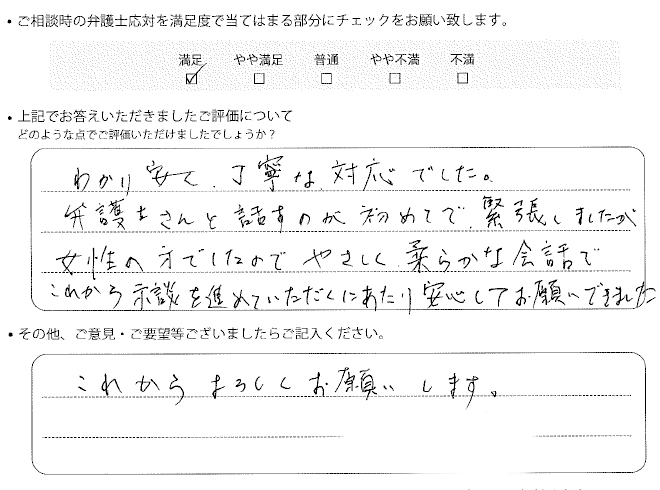 ・ご相談時の弁護士応対を満足度で当てはまる部分にチェックをお願い致します。
満足 やや満足 普通 やや不満 不満
・上記でお答えいただきましたご評価について
どのような点でご評価いただけましたでしょうか？
わかり安く、丁寧な対応でした。
弁護士さんと話すのが初めてで、緊張しましたが
女性の方でしたので やさしく柔らかな会話で
これから示談を進めていただくにあたり安心してお願いできました
・その他、ご意見・ご要望等ございましたらご記入ください。
これからよろしくお願いします。